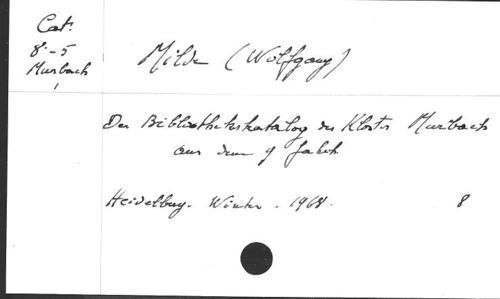 Cat.
8°-5
Murbach
1
Milde (Wolfgang)
Der Bibliothekskatalog des Klosters Murbach
aus dem 9 Jahrh
Heidelberg. Winter. 1968. 8